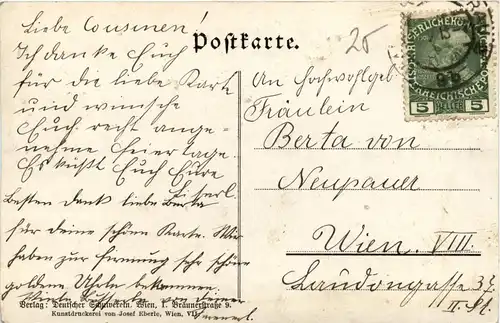 Postkarte.
25
Liebe Cousinen!
Ich danke Euch
für die liebe Karte
und wünsche
Euch recht ange-
nehme Feiertage.
Es küßt Euch Eure
Liserl.
Besten Dank liebe Berta
für deine schönen Karte. Wir
haben zur Firmung sehr schöne
goldene Uhrln bekommen.
Viele von deiner
An Hochwohlgeb.
Fräulein
Berta von
Neupauer
Wien, VIII.
Laudongasse 37.
II. St.
KAISERLICHE KÖNIGLICHE ÖSTERREICHISCHE POST
5 HELLER 5
Verlag: Deutscher Schulverein, Wien, I. Bräunerstraße 9.
Kunstdruckerei von Josef Eberle, Wien, VII.